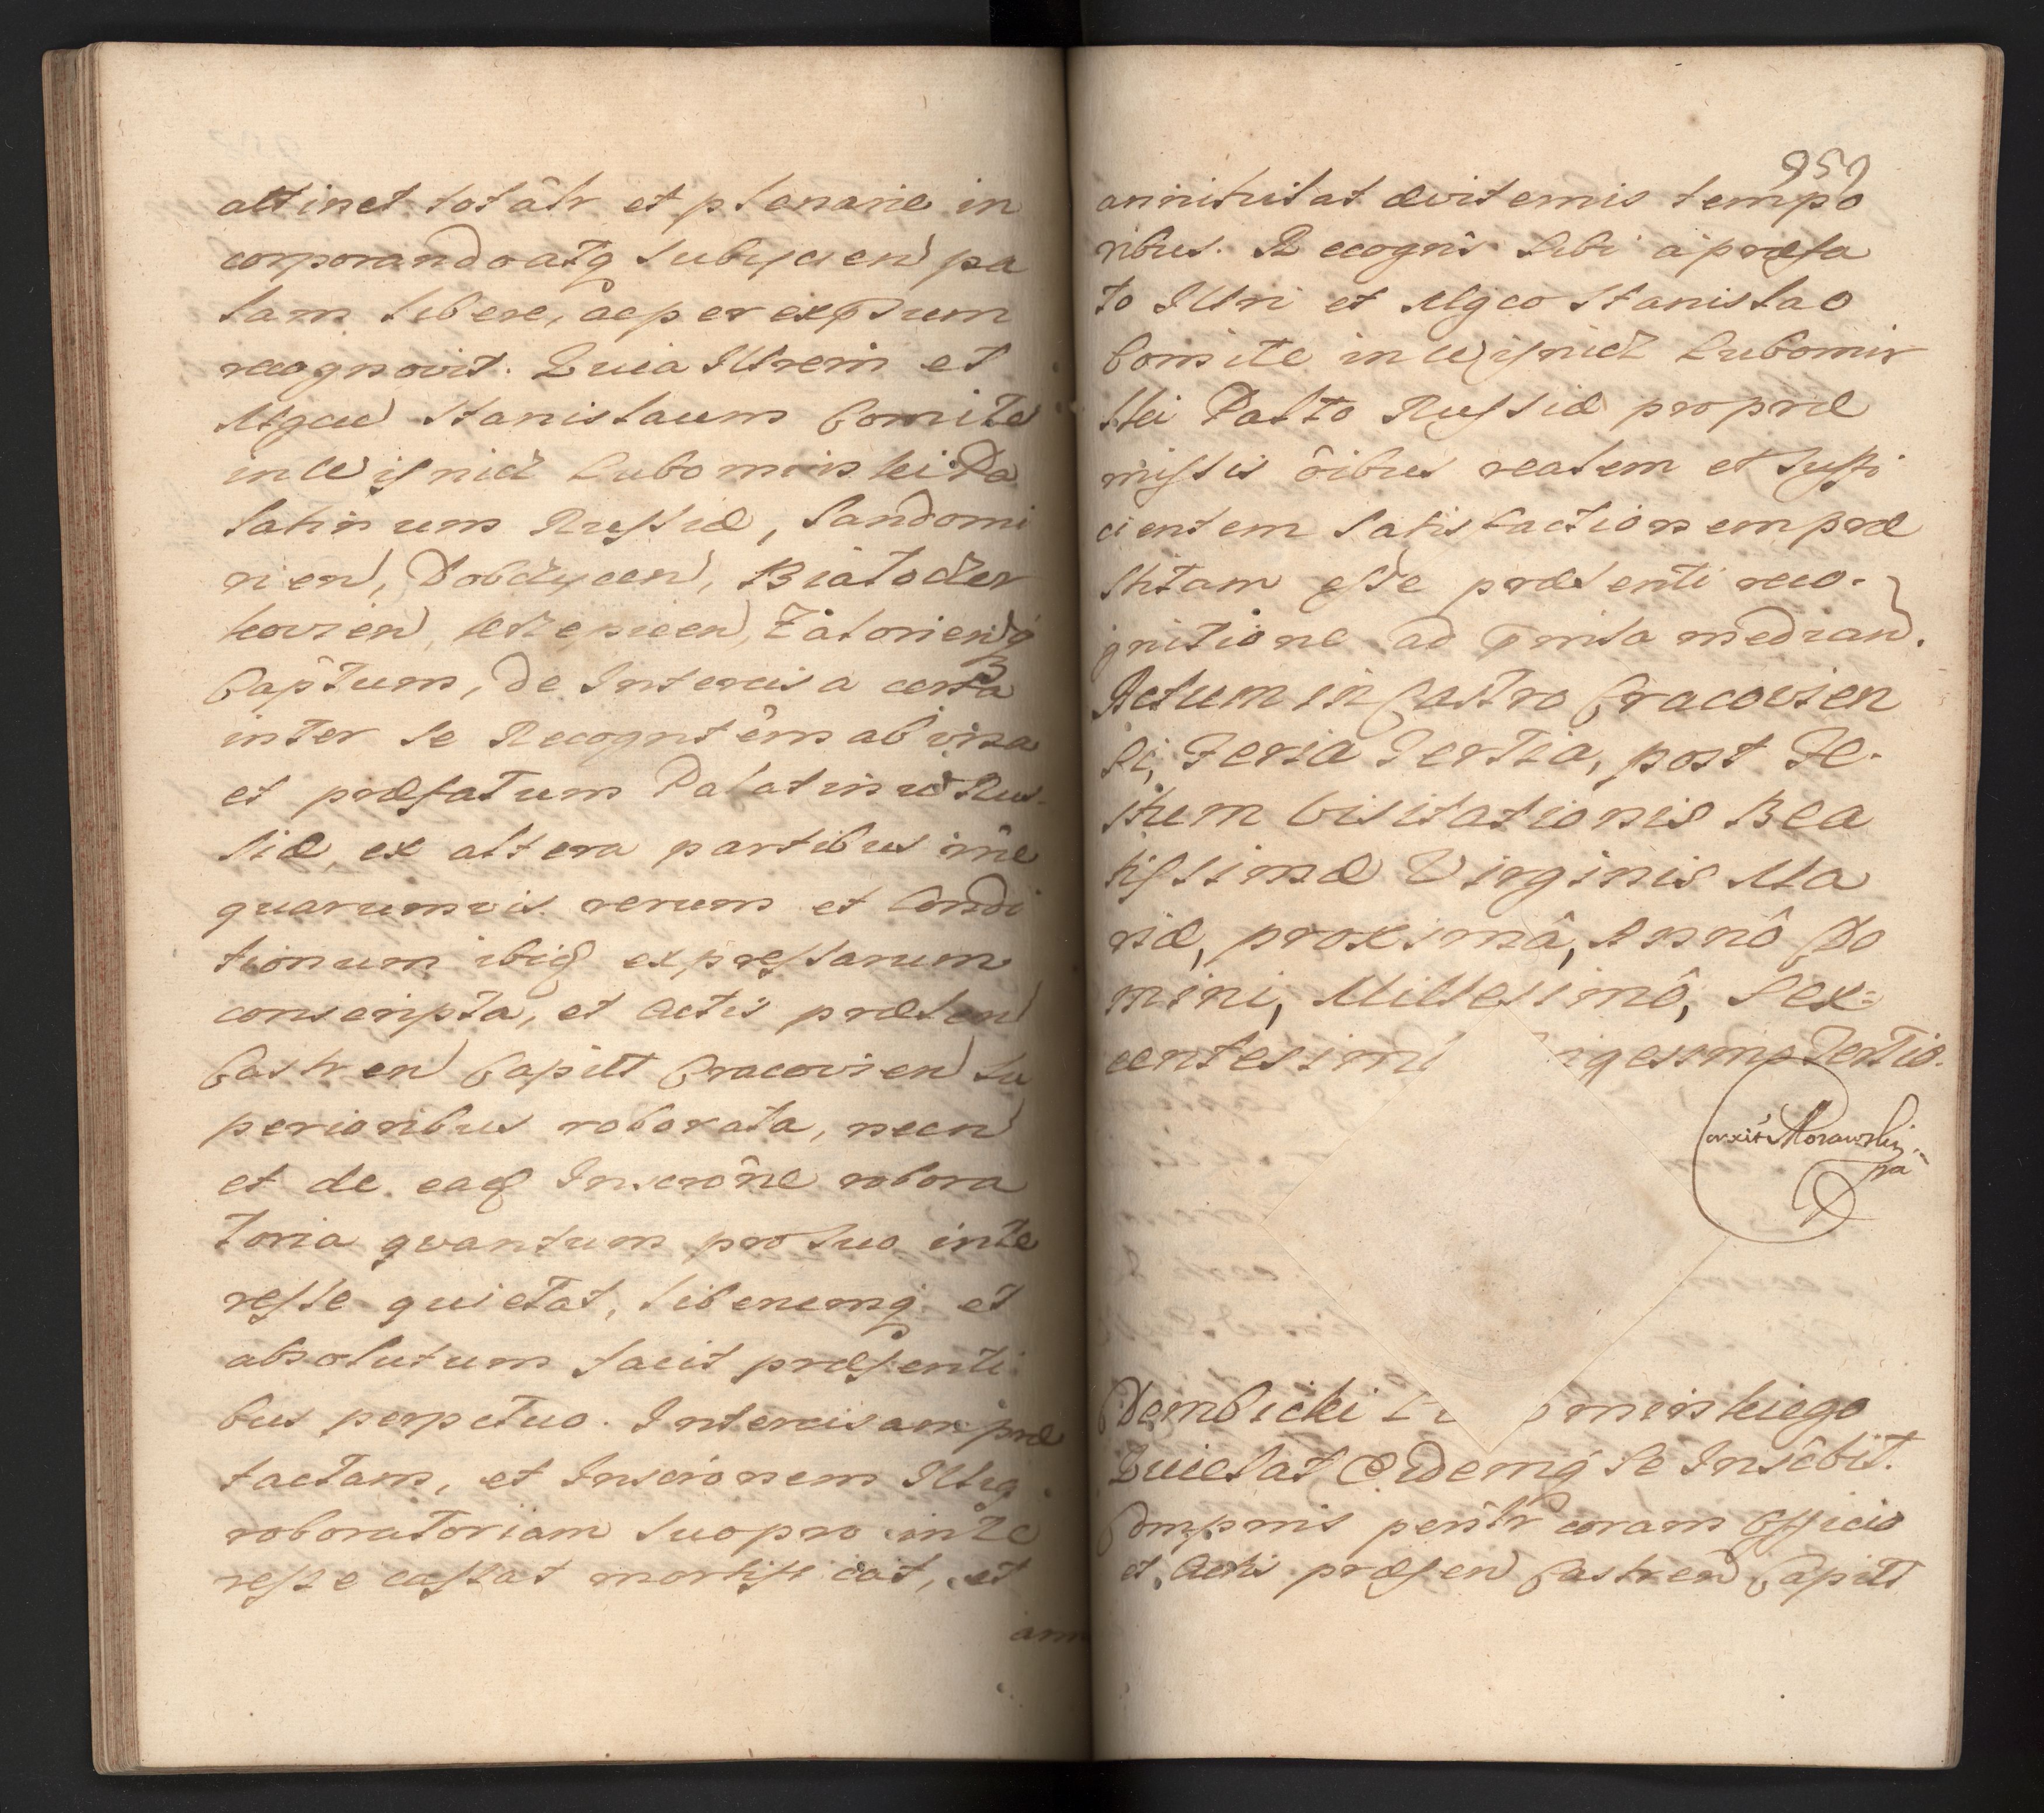 attinet totâlr et plenarie in
corporando atq subijcien pa
lam libere, ac per expssum
recognovit. Quia Illrem et
Mgcu Stanislaum Comite
in Wisnicz Lubomirski Pa
latinum Russiæ, Sandomi
rien, Dobczycen, Białocer
kovien, Krzepicen, Zatorienq
Capîtum, de Intercisa certa
inter se Recogntêm ab una
et præfatum Palatinu Rus
siæ, ex altera partibus rône
quarumvis rerum et Condi
tionum ibiq expressarum
conscripta, et Actis præsen
Castren Capitt Cracovien su
perioribus roborata, necn
et de eaq Inscrône robora
toria quantum pro suo inte
resse quietat, liberumq et
absolutum facit præsenti
bus perpetuo. Intercisam præ
tactam, et Inscrionem Illiq
roboratoriam suo pro inte
resse cassat mortificat, et
ann
959
annihilat æviternis tempo
ribus. Recogns sibi a præfa
to Illri et Mgco Stanislao
Comite in Wisnicz Lubomir
ski Palto Russiæ pro præ
missis ôibus realem et suffi
cientem satisfactionem præ
stitam esse præsenti reco-
gnitione ad pmissa median.
Actum in Castro Cracovien
si, Feria Tertia, post Fe-
stum Visitationis Bea
tissimæ Virginis Ma
riæ, proximâ, Annô Do
mini, Millesimô, Sex-
centesimo gesimo Tertio.
Morawski
Dembicki L mirskiego
Quietat Eidemq se Inscbit.
Compnis persltr coram Officio
et Actis præsen Castren Capitt